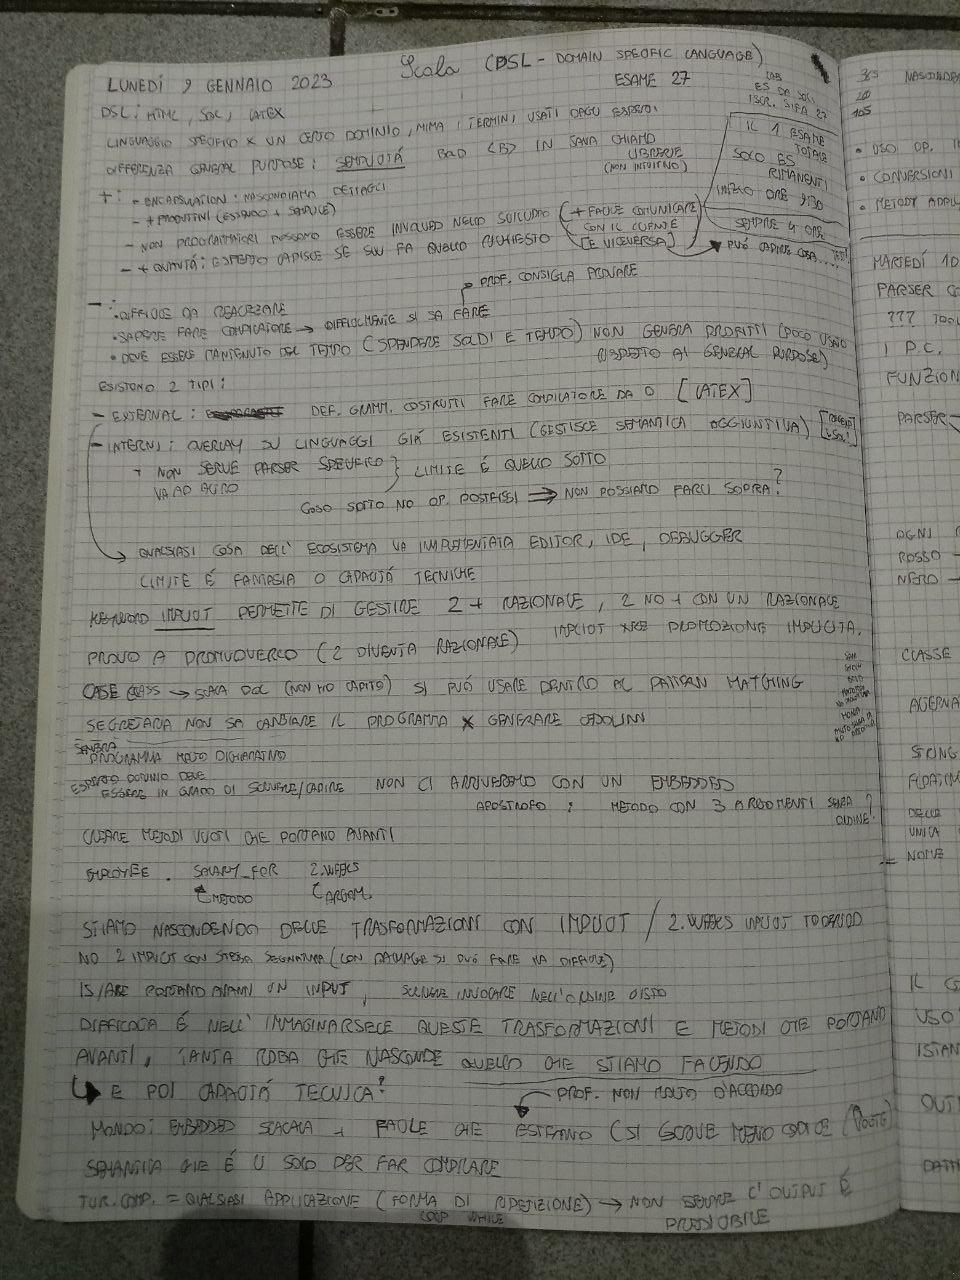 LUNEDÍ 9 GENNAIO 2023
Scala (DSL - DOMAIN SPECIFIC LANGUAGE)
ESAME 27
DSL: HTML, SQL, LATEX
LINGUAGGIO SPECIFICO X UN CERTO DOMINIO, MIMA I TERMINI USATI DAGLI ESPERTI.
DIFFERENZA GENERAL PURPOSE: SEMPLICITÁ BAD <B> IN SCALA CHIAMO LIBRERIE
(NON INTUITIVO)
LAB
ES DA SOLI
ISCR. SIFA 27
IL 1 ESAME TOTALE
SOLO ES RIMANENTI
INIZIO ORE 9:30
SEMPRE 4 ORE
+: - ENCAPSULATION: NASCONDIAMO DETTAGLI
- + PRODUTTIVI (ESSENDO + SEMPLICE)
- NON PROGRAMMATORI POSSONO ESSERE INVOLVED NELLO SVILUPPO (+ FACILE COMUNICARE
CON IL CLIENTE
[E VICEVERSA]
- + QUALITÁ: ESPERTO CAPISCE SE SW FA QUELLO RICHIESTO
PUÓ CAPIRE COSA....
PROF. CONSIGLIA PROVARE
- : • DIFFICILE DA REALIZZARE
• SAPERE FARE COMPILATORE → DIFFICILMENTE SI SA FARE
• DEVE ESSERE MANTENUTO NEL TEMPO (SPENDERE SOLDI E TEMPO) NON GENERA PROFITTI (POCO USATO
RISPETTO AI GENERAL PURPOSE)
ESISTONO 2 TIPI:
- EXTERNAL: DEF. GRAMM. COSTRUTTI FARE COMPILATORE DA 0 [LATEX]
- INTERNI: OVERLAY SU LINGUAGGI GIÁ ESISTENTI (GESTISCE SEMANTICA AGGIUNTIVA)
+ NON SERVE PARSER SPECIFICO } LIMITE É QUELLO SOTTO
VA AD ALTRO
COSO SOTTO NO OP. POSTFISSI ⇒ NON POSSIAMO FARLI SOPRA?
QUALSIASI COSA DELL' ECOSISTEMA VA IMPLEMENTATA EDITOR, IDE, DEBUGGER
LIMITE É FANTASIA O CAPACITÁ TECNICHE
KEYWORD IMPLICIT PERMETTE DI GESTIRE 2 + RAZIONALE, 2 NO + CON UN RAZIONALE
PROVO A PROMUOVERLO (2 DIVENTA RAZIONALE) IMPLICIT XRE PROMOZIONE IMPLICITA.
CASE CLASS → SCALA DOC (NON HO CAPITO) SI PUÓ USARE DENTRO AL PATTERN MATCHING
SEGRETARIA NON SA CAMBIARE IL PROGRAMMA X GENERARE CEDOLINI
SEMBRA
PROGRAMMA MOLTO DICHIARATIVO
ESPERTO DOMINIO DEVE
ESSERE IN GRADO DI SCRIVERE/CAPIRE NON CI ARRIVEREMO CON UN EMBEDDED
APOSTROFO: METODO CON 3 ARGOMENTI SENZA ORDINE?
CREARE METODI VUOTI CHE PORTANO AVANTI
EMPLOYEE . SALARY_FOR 2.WEEKS
METODO ARGOM.
STIAMO NASCONDENDO DELLE TRASFORMAZIONI CON IMPLICIT / 2.WEEKS IMPLICIT TO PERIOD
NO 2 IMPLICIT CON STESSA SEGNATURA (CON PACKAGE SI PUÓ FARE MA DIFFICILE)
IS/ARE PORTANO AVANTI UN INPUT, SCEGLIE INVOCARE NELL'ORDINE GIUSTO
DIFFICOLTÁ É NELL' IMMAGINARSELE QUESTE TRASFORMAZIONI E METODI CHE PORTANO
AVANTI, TANTA ROBA CHE NASCONDE QUELLO CHE STIAMO FACENDO
E POI CAPACITÁ TECNICA?
PROF. NON MOLTO D'ACCORDO
MONDO: EMBEDDED SCALA + FACILE CHE ESTERNO (SI SCRIVE MENO CODICE
SEMANTICA CHE É LI SOLO PER FAR COMPILARE
TUR.COMP. = QUALSIASI APPLICAZIONE (FORMA DI RIPETIZIONE) → NON SEMPRE L' OUTPUT É
LOOP WHILE
PREDICIBILE
MARTEDÍ 10
??? TOOL
I P.C.
FUNZION
PARSER
OGNI
ROSSO
NERO
CLASSE
STRING
UNICA
NOME
USO
ISTAN
OUT